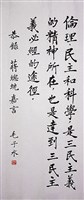 倫理民主和科學是三民主義
的精神所在也是達到三民主
義必經的途徑
恭錄 蔣總統嘉言
毛子水